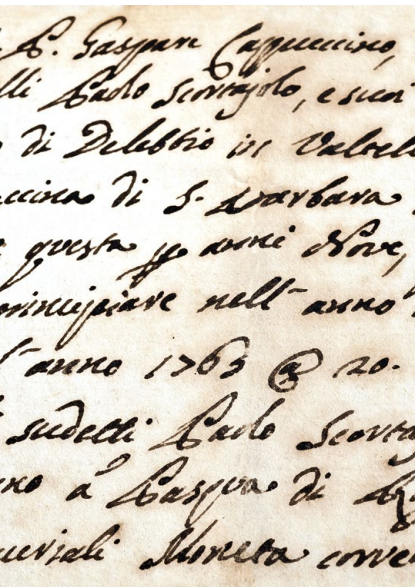 P. Gaspare Cappuccino,
lli Paolo Scortajolo, e suoi
di Delebbio in Valtel
ccina di S. Barbara
questa p anni Nove,
principiare nell' anno
l' anno 1763 @ 20.
sudetti Paolo Scorta
no à Pasqua di
periali Moneta corre